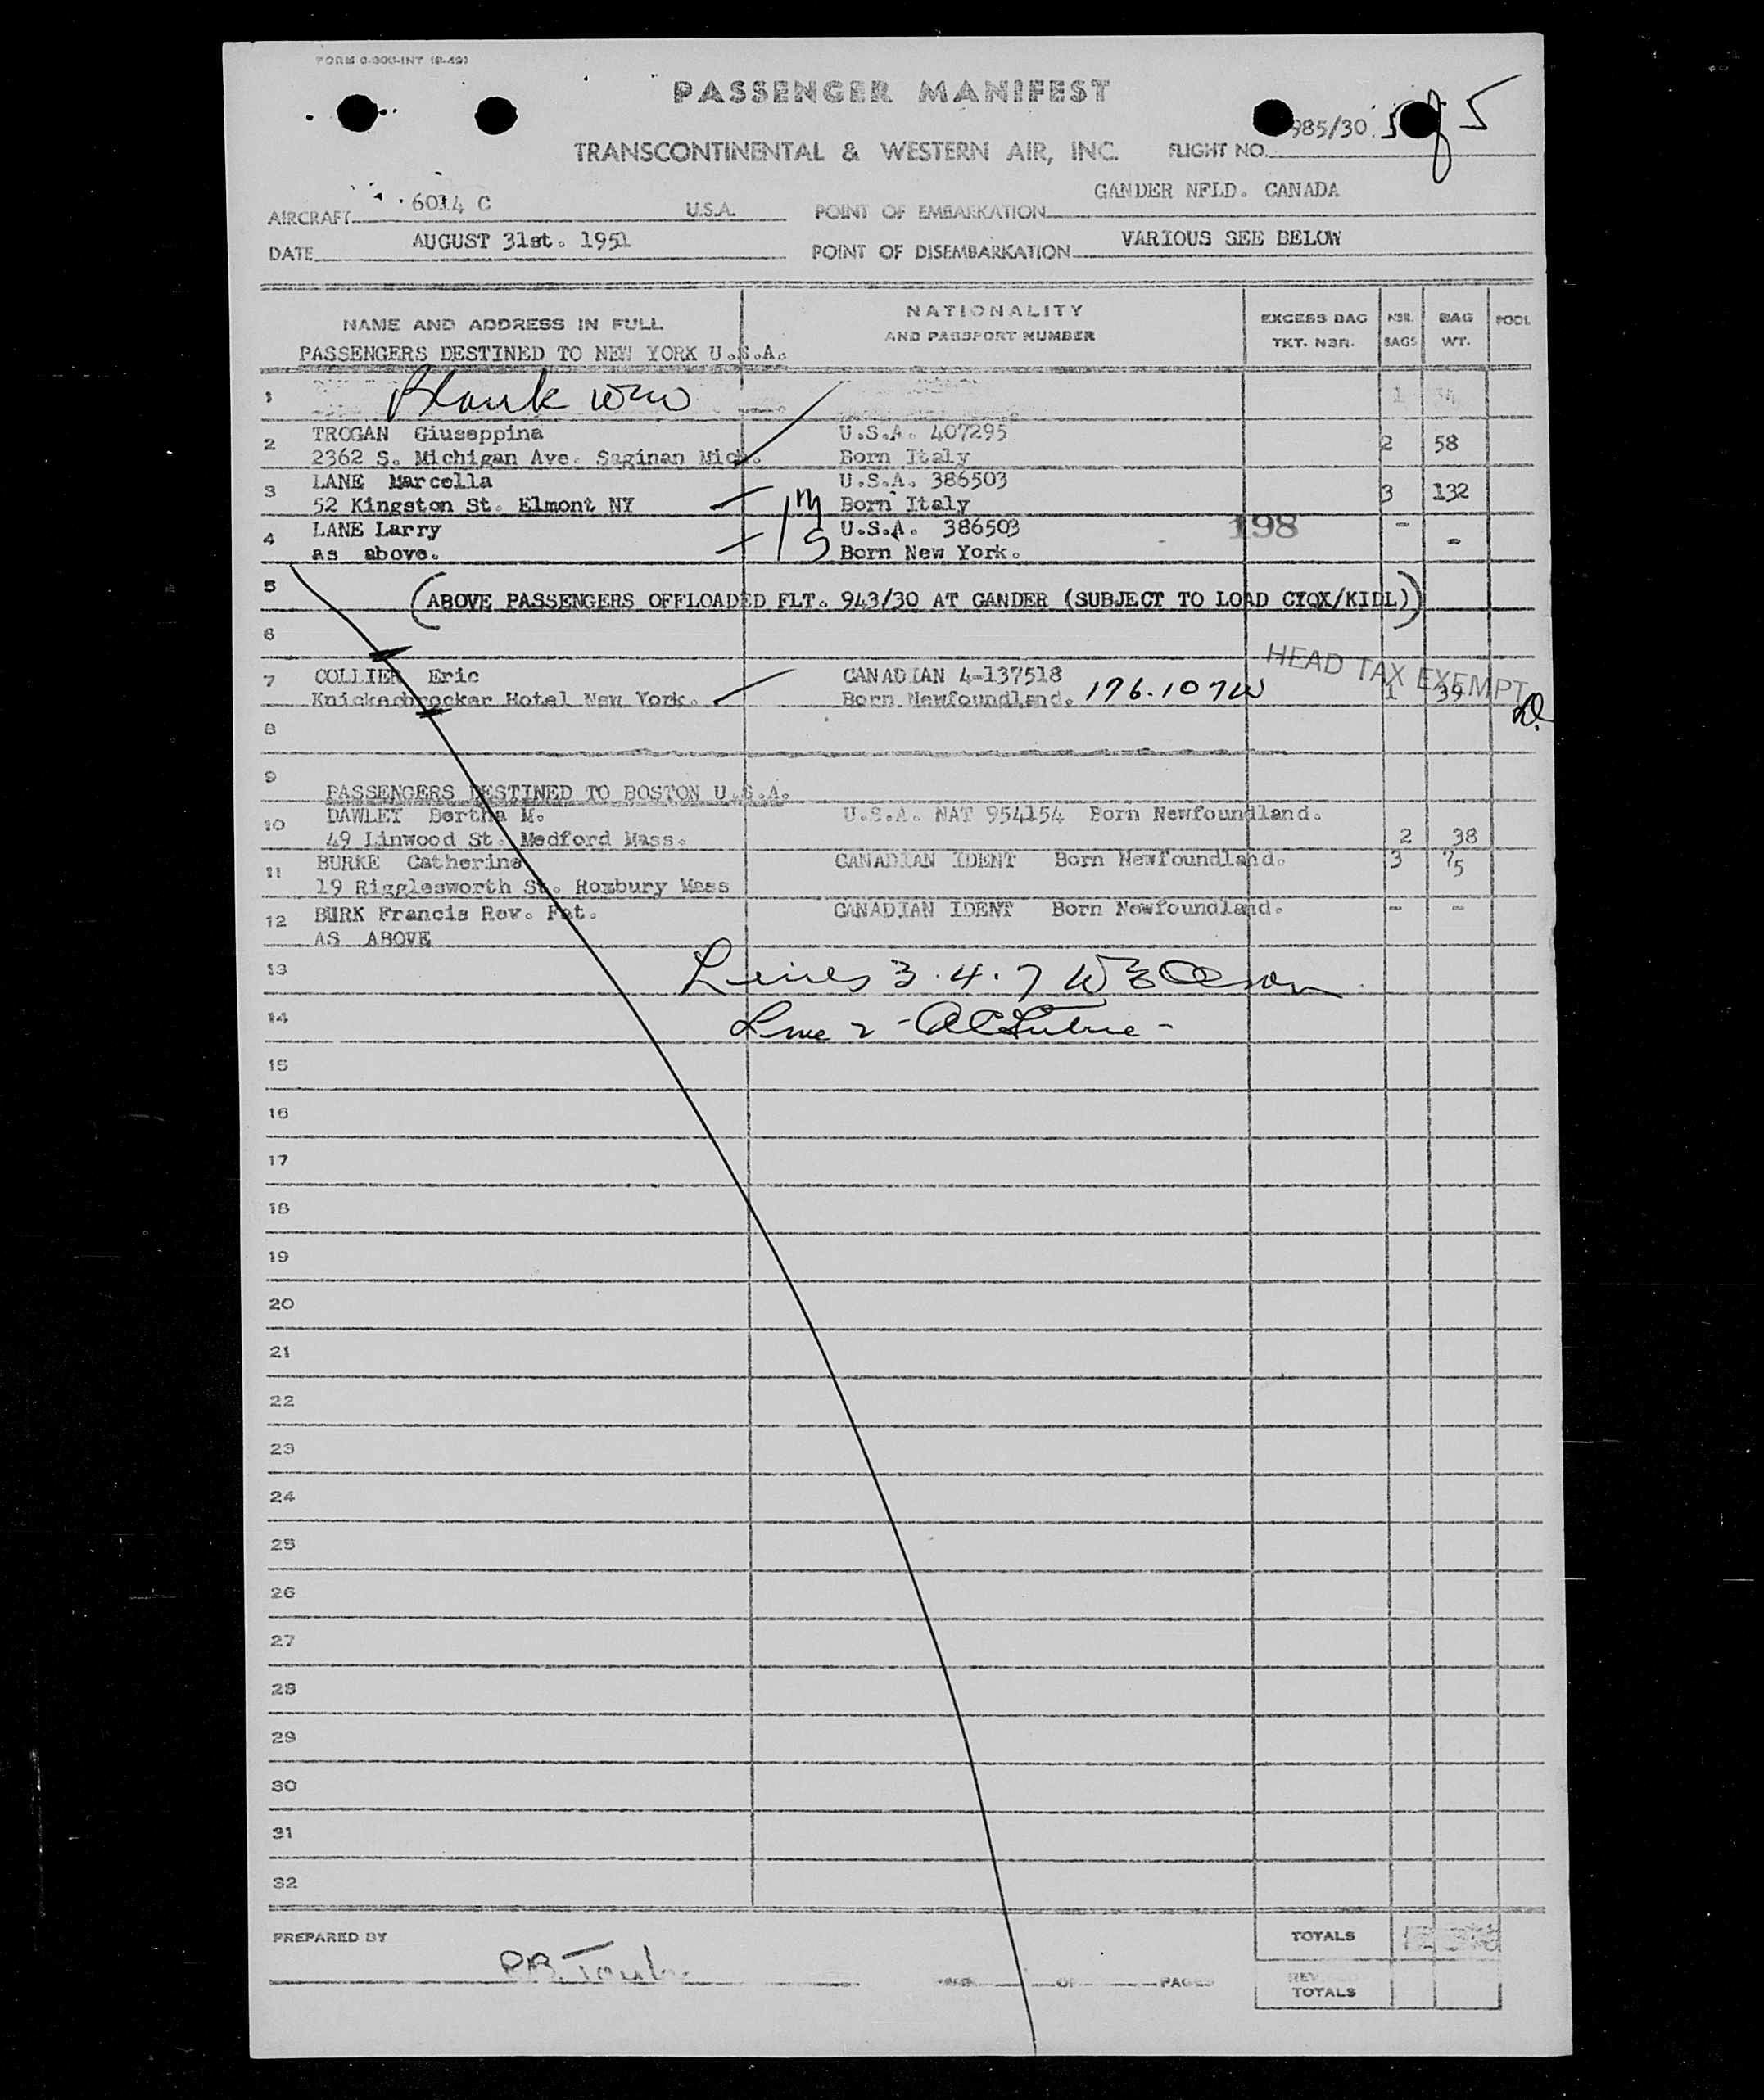 FORM O-300-INT (8-49)
PASSENGER MANIFEST
TRANSCONTINENTAL & WESTERN AIR, INC. FLIGHT NO. 985/30. 5 of 5
AIRCRAFT 6014 C U.S.A. POINT OF EMBARKATION GANDER NFLD. CANADA
DATE AUGUST 31st. 1951 POINT OF DISEMBARKATION VARIOUS SEE BELOW
NAME AND ADDRESS IN FULL NATIONALITY AND PASSPORT NUMBER EXCESS BAG TKT. NBR. NBR. BAGS BAG WT. POOL
PASSENGERS DESTINED TO NEW YORK U.S.A.
1 Blank
2 TROGAN Giuseppina U.S.A. 407295 2 58
2362 S. Michigan Ave. Saginan Mich. Born Italy
3 LANE Marcella U.S.A. 386503 3 132
52 Kingston St. Elmont NY Born Italy
4 LANE Larry U.S.A. 386503 198 - -
as above. Born New York.
5 (ABOVE PASSENGERS OFFLOADED FLT. 943/30 AT GANDER (SUBJECT TO LOAD CYQX/KIDL))
6
HEAD TAX EXEMPT
7 COLLIER Eric CANADIAN 4-137518 1 39
Knickecbrocker Hotel New York. Born Newfoundland. 176.107W
8
9 PASSENGERS DESTINED TO BOSTON U.S.A.
10 DAWLEY Bertha M. U.S.A. NAT 954154 Born Newfoundland.
49 Linwood St. Medford Mass. 2 38
11 BURKE Catherine CANADIAN IDENT Born Newfoundland. 3 75
19 Rigglesworth St. Roxbury Mass
12 BURK Francis Rev. Fat. CANADIAN IDENT Born Newfoundland. - -
AS ABOVE
13 Lines 3.4.7
14 Line 2 -
15
16
17
18
19
20
21
22
23
24
25
26
27
28
29
30
31
32
PREPARED BY TOTALS
OF PAGES TOTALS